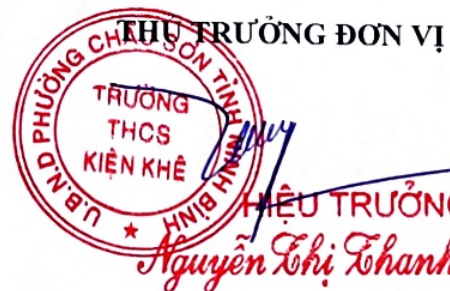 THỦ TRƯỞNG ĐƠN VỊ
U.B.N.D PHƯỜNG CHÂU SƠN TỈNH NINH BÌNH
TRƯỜNG
THCS
KIỆN KHÊ
HIỆU TRƯỞNG
Nguyễn Thị Thanh